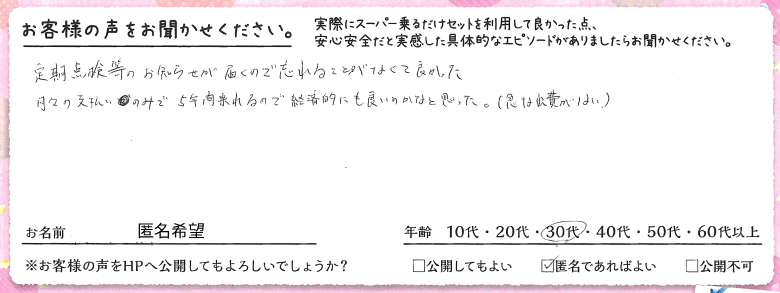 お客様の声をお聞かせください。
実際にスーパー乗るだけセットを利用して良かった点、
安心安全だと実感した具体的なエピソードがありましたらお聞かせください。
定期点検等のお知らせが届くので忘れることがなくて良かった
月々の支払いのみで5年間乗れるので経済的にも良いのかなと思った。(急な出費がない)
お名前 匿名希望
年齢 10代・20代・30代・40代・50代・60代以上
※お客様の声をHPへ公開してもよろしいでしょうか? □公開してもよい ☑匿名であればよい □公開不可